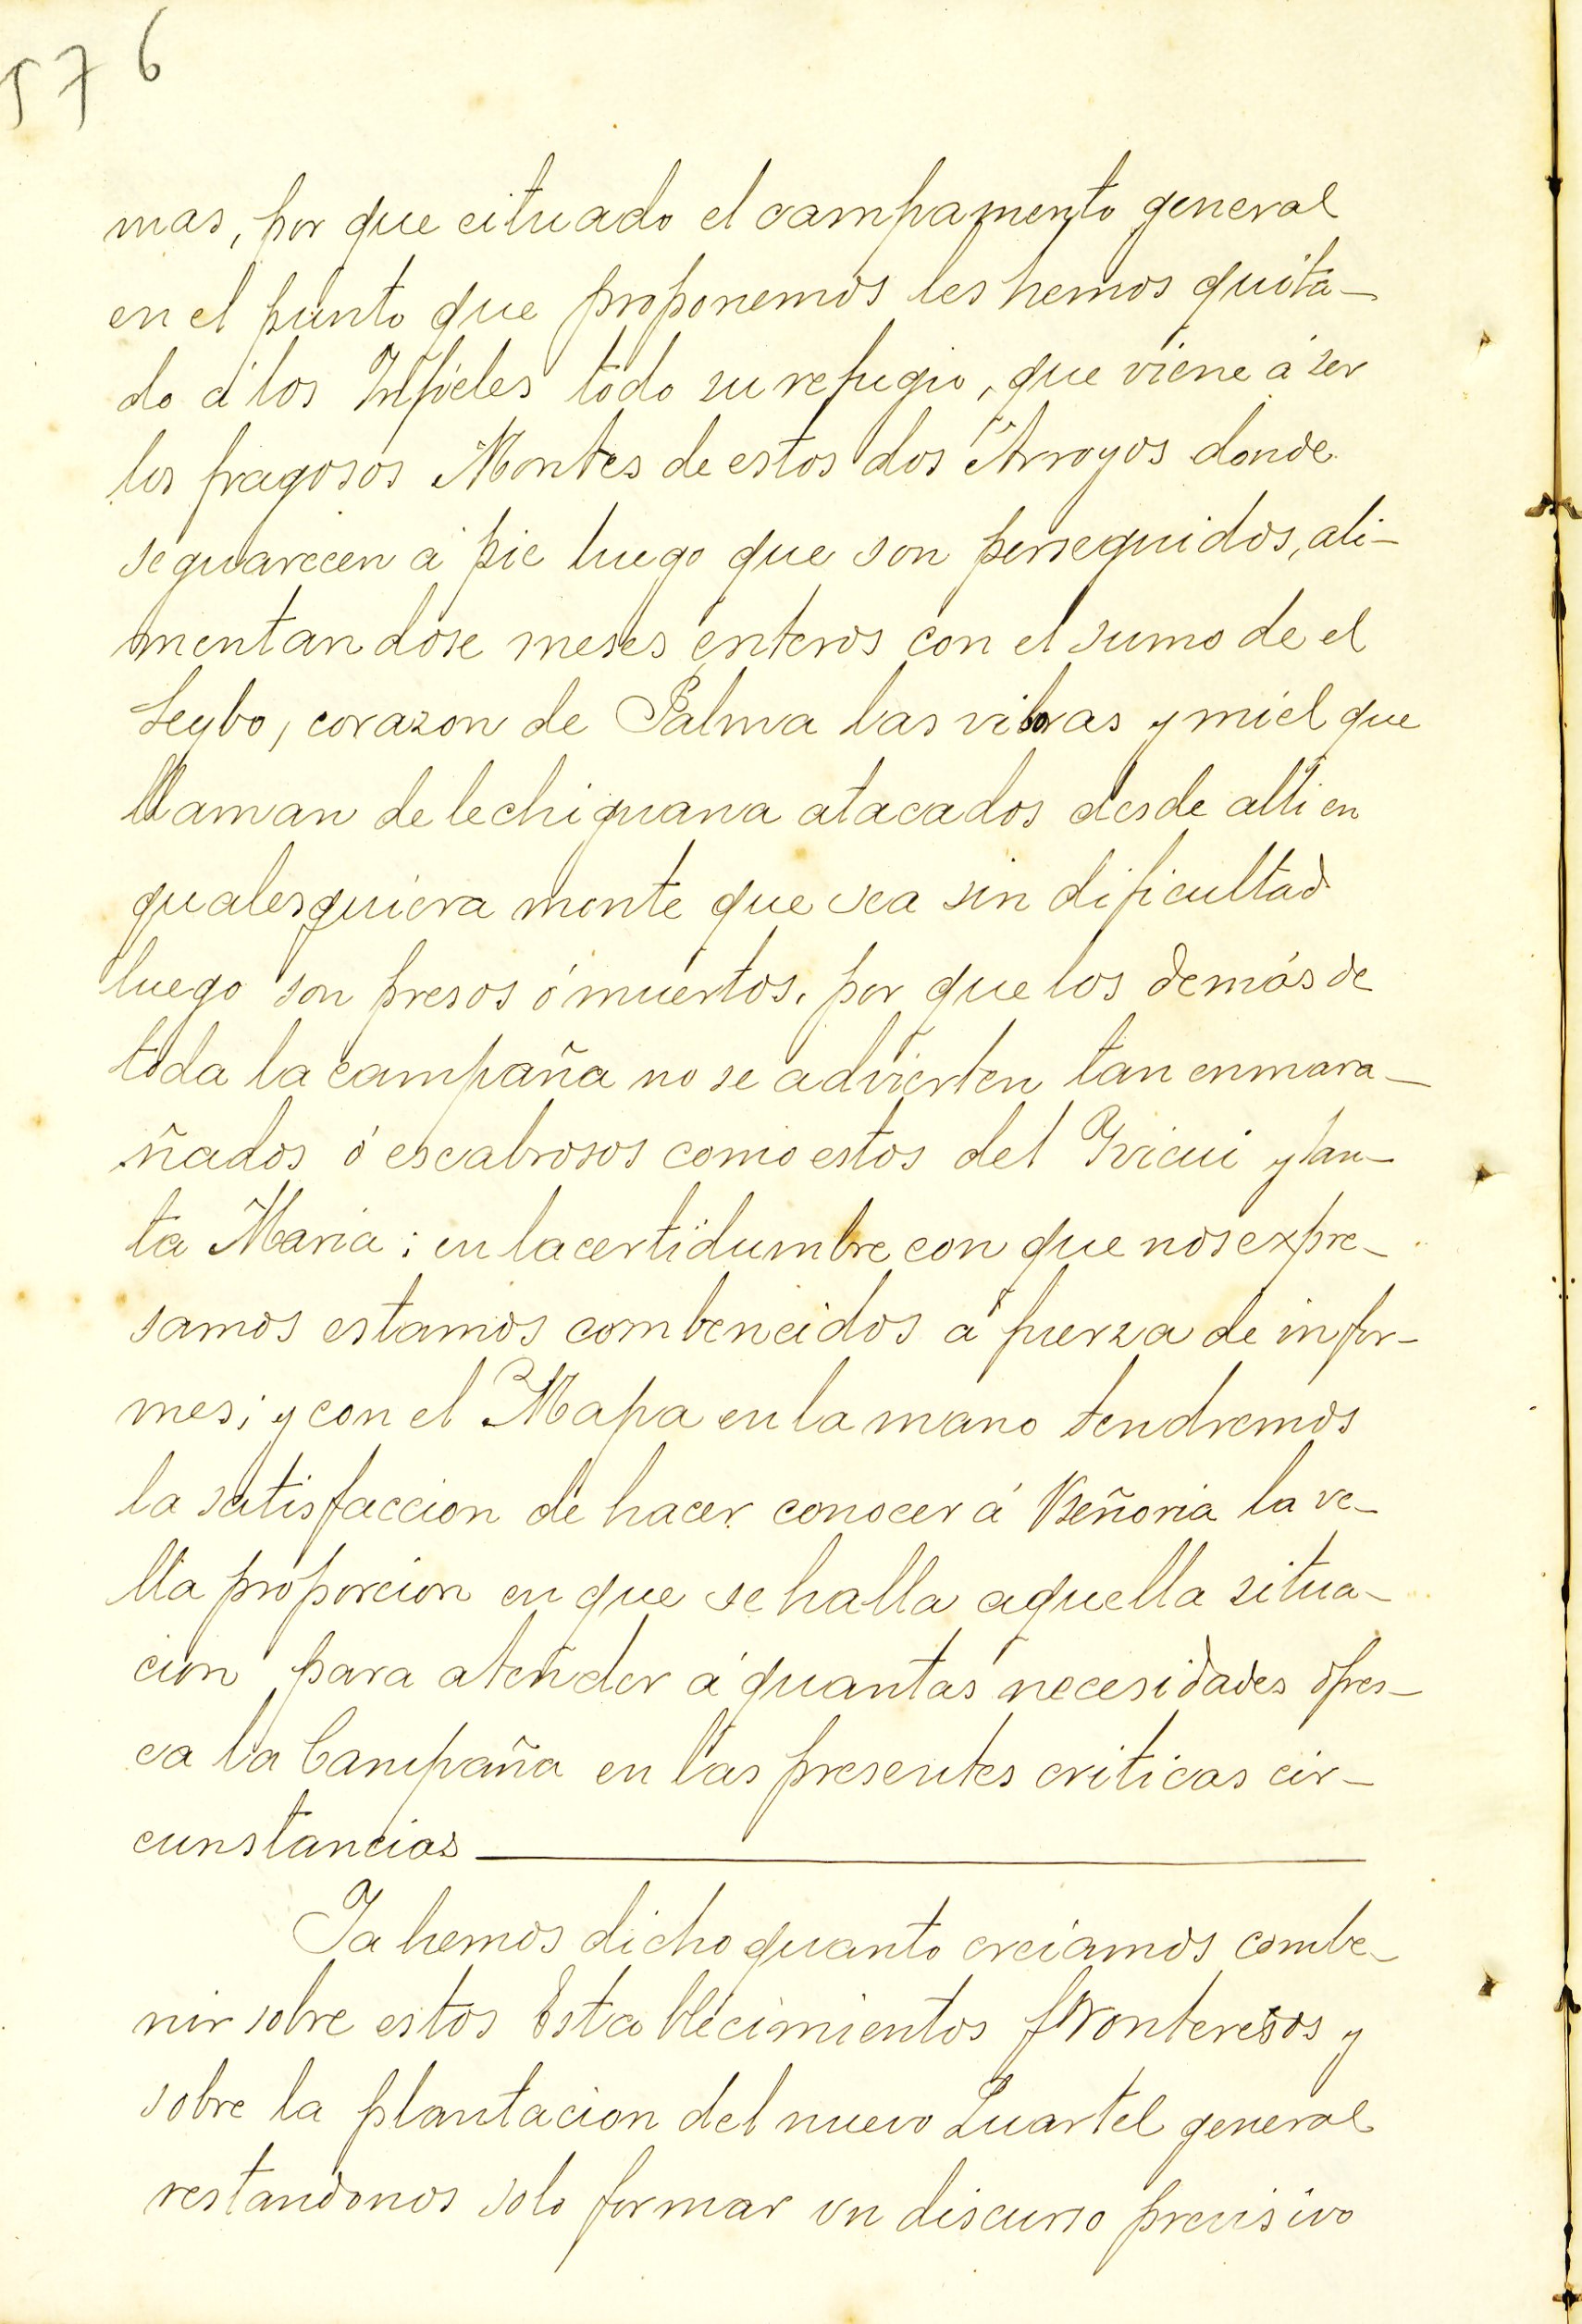 576
mas, por que cituado el campamento general
en el punto que proponemos les hemos quita-
do á los Infieles todo su refugio, que viene á ser
los fragosos Montes de estos dos Arroyos donde
se guarecen á pie luego que son perseguidos, ali-
mentandose meses enteros con el sumo de el
Seybo, corazon de Palma las viboras y miel que
llaman de lechiguana atacados desde alli en
qualesquiera monte que sea sin dificultad
luego son presos ó muertos, por que los demás de
toda la campaña no se advierten tan enmara-
ñados ó escabrosos como estos del Yvicui y San-
ta Maria; en la certidumbre con que nos expre-
samos estamos combencidos á fuerza de infor-
mes; y con el Mapa en la mano tendremos
la satisfaccion de hacer conocer á VSeñoria la ve-
lla proporcion en que se halla aquella situa-
cion para atender á quantas necesidades ofres-
ca la Campaña en las presentes criticas cir-
cunstancias
Ya hemos dicho quanto creíamos combe-
nir sobre estos Establecimientos fronteresos y
sobre la plantacion del nuevo Quartel general
restandonos solo formar un discurso precisivo